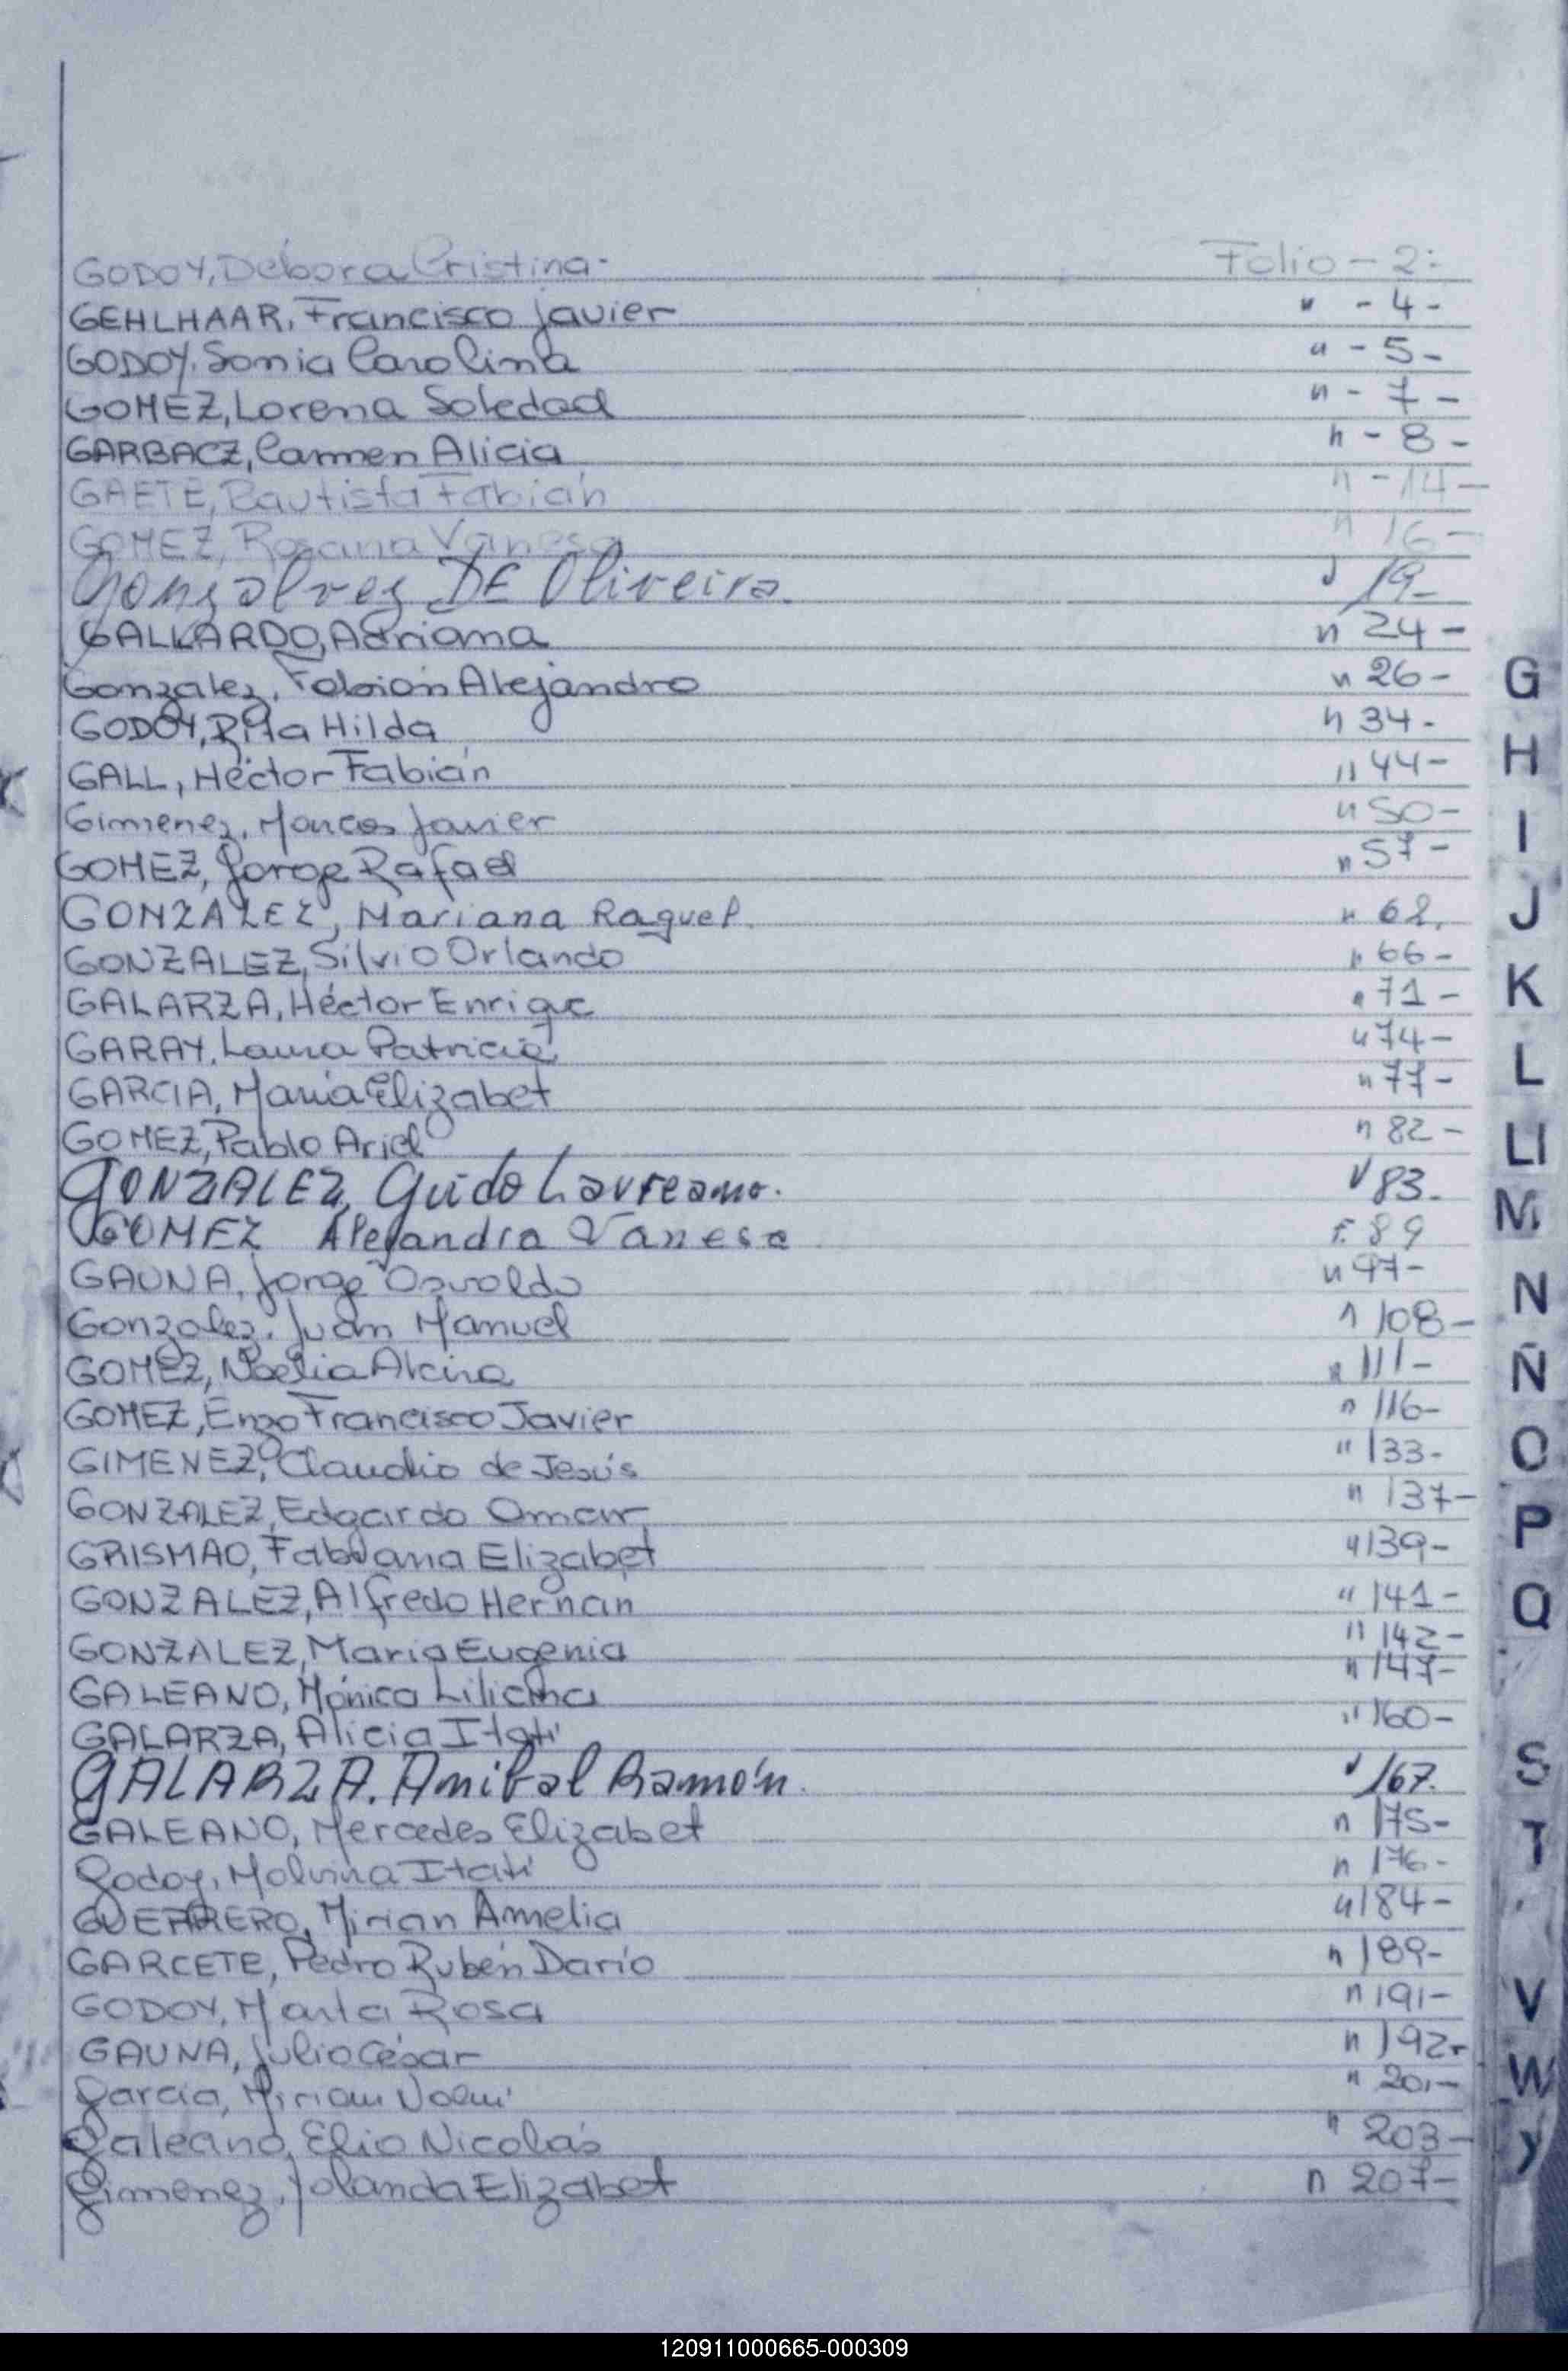 GODOY, Débora Cristina- Folio - 2:
GEHLHAAR, Francisco Javier " - 4 -
GODOY, Sonia Carolina " - 5 -
GOMEZ, Lorena Soledad " - 7 -
GARBACZ, Carmen Alicia " - 8 -
GAETE, Bautista Fabián " - 14 -
GOMEZ, Rosana Vanesa " 16 -
Gonsalvez DE Oliveira. " 19 -
GALLARDO, Adriana " 24 -
Gonzalez, Fabián Alejandro " 26 -
GODOY, Rita Hilda " 34 -
GALL, Héctor Fabián " 44 -
Gimenez, Marcos Javier " 50 -
GOMEZ, Jorge Rafael " 57 -
GONZALEZ, Mariana Raquel. " 62.
GONZALEZ, Silvio Orlando " 66 -
GALARZA, Héctor Enrique " 71 -
GARAY, Laura Patricia " 74 -
GARCIA, María Elizabet " 77 -
GOMEZ, Pablo Ariel " 82 -
GONZALEZ, Guido Laureano. " 83 -
GOMEZ Alejandra Vanesa F. 89
GAUNA, Jorge Osvaldo " 97 -
Gonzalez, Juan Manuel " 108 -
GOMEZ, Noelia Alcira " 111 -
GOMEZ, Enzo Francisco Javier " 116 -
GIMENEZ, Claudio de Jesús " 133 -
GONZALEZ, Edgardo Omar " 137 -
GRISMAO, Fabiana Elizabet " 139 -
GONZALEZ, Alfredo Hernán " 141 -
GONZALEZ, María Eugenia " 142 -
GALEANO, Mónica Liliana " 147 -
GALARZA, Alicia Itatí " 160 -
GALARZA, Anibal Ramón. " 167.
GALEANO, Mercedes Elizabet " 175 -
Godoy, Malvina Itatí " 176 -
GUERRERO, Mirian Amelia " 184 -
GARCETE, Pedro Rubén Darío " 189 -
GODOY, Marta Rosa " 191 -
GAUNA, Julio César " 192 -
Garcia, Miriam Noemí " 201 -
Galeano, Elio Nicolás " 203 -
Gimenez, Yolanda Elizabet " 207 -
G
H
I
J
K
L
Ll
M
N
Ñ
O
P
Q
S
T
V
W
Y
120911000665-000309